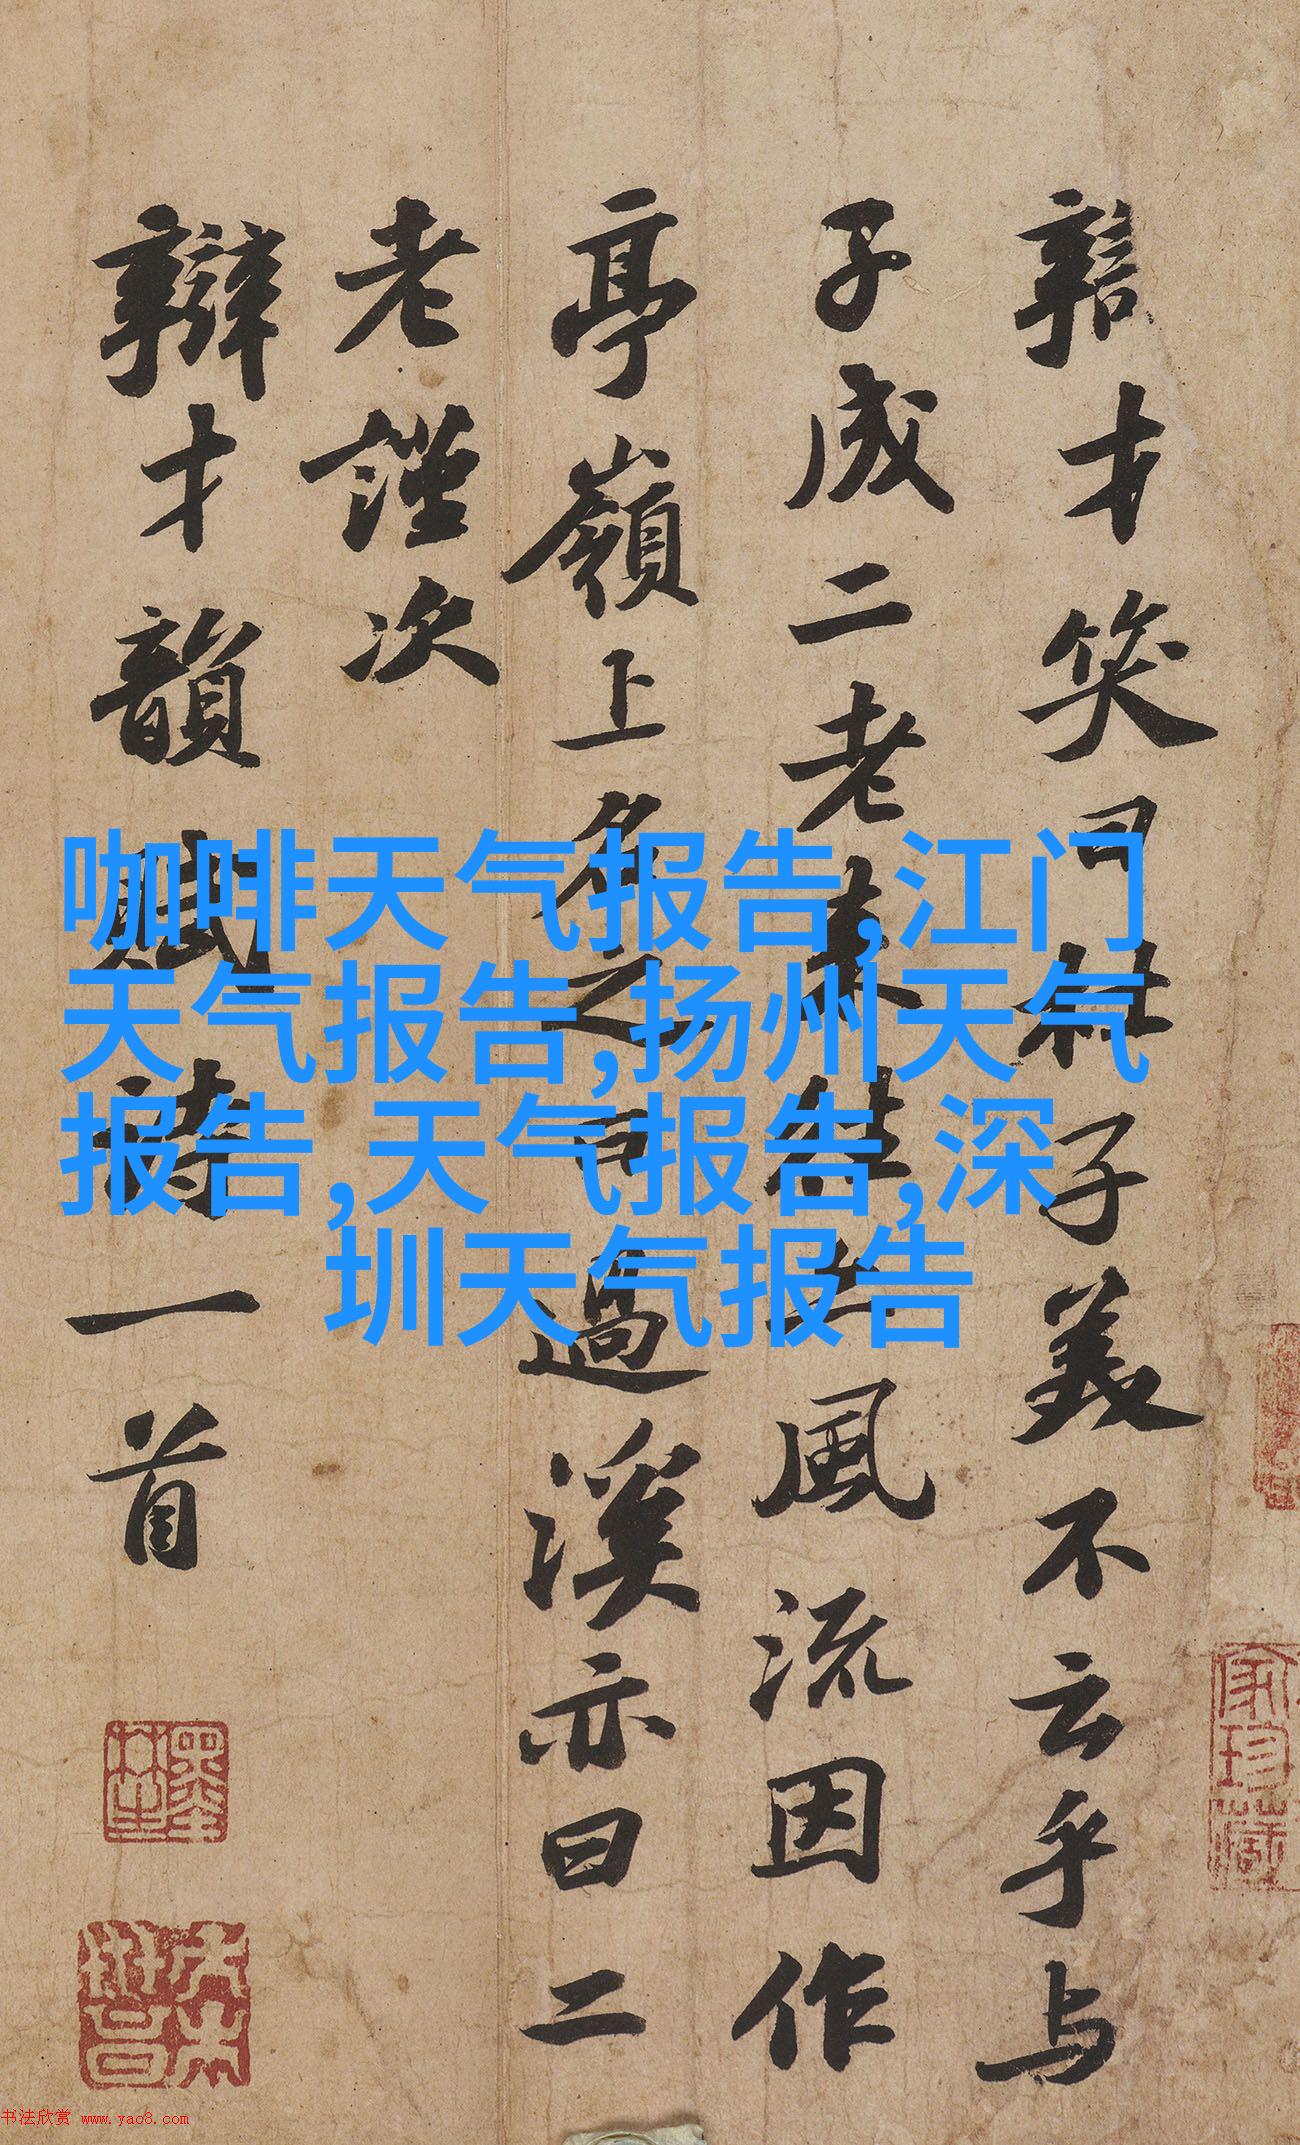 辯才笑曰杜子美不云乎与
子成二老來往亦風流因作
亭嶺上名之曰過溪亦曰二
老謹次
辯才韻賦詩一首
咖啡天气报告,江门
天气报告,扬州天气
报告,天气报告,深
圳天气报告
家珍藏
书法欣赏 www.yac8.com